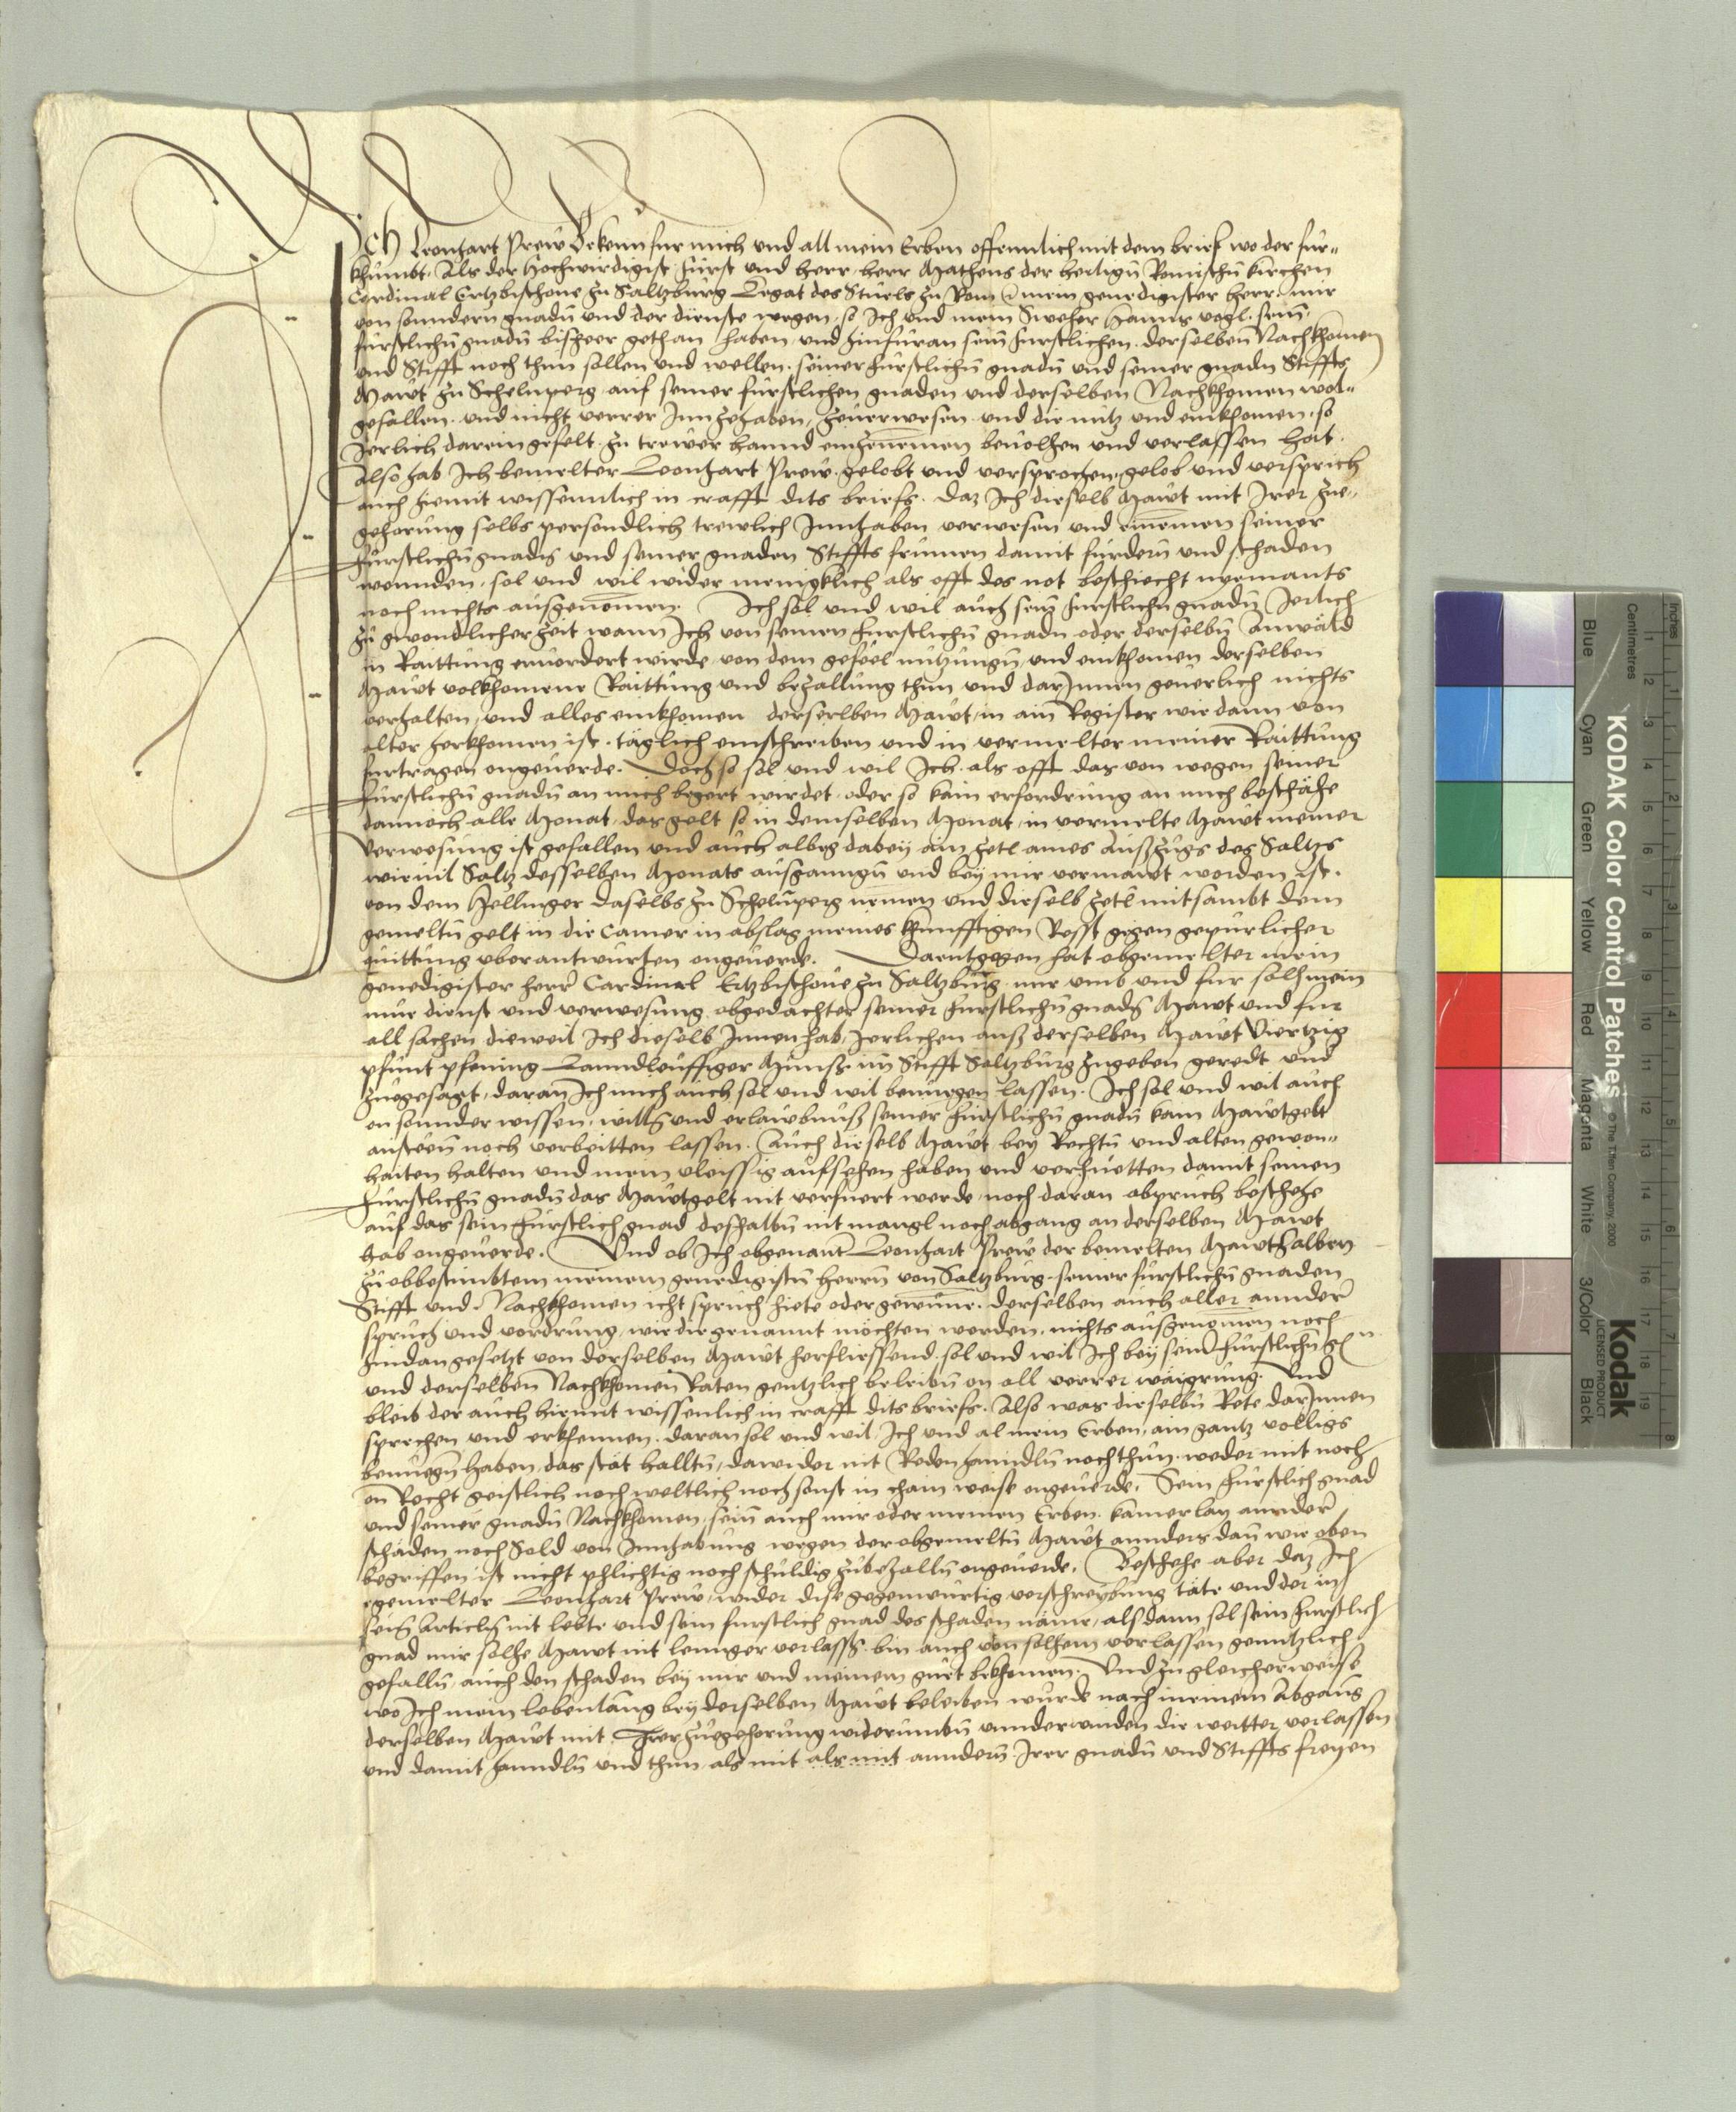 Ich Leonhart Prew Bekenn fur mich und all mein Erben offennlich mit dem brief wo der fur-
khumbt. Als der Hochwirdigist Fürst und herr herr Matheus der heiligen Römischn kirchen
Cardinal Ertzbischove zu Saltzburg Legat des Stuels zu Rom mein genedigister herr. mir
von sonndern gnadn und der dienste wegen, so Ich und mein Sweher Hanns vogl. sein
fürstlichn gnadn bisheer gethan haben, und hinfuran sein furstlichen. derselben Nachkhomen
und Stifft noch thun sollen und wellen. seiner fürstlichn gnadn und seiner gnadn Stiffts
Mawt zu Schelnperg auf seiner fürstlichen gnaden und derselben Nachkhomen wol-
gefallen. und nicht verrer Inn zehaben, zeuerwesen und die nütz und einkhomen, so
Jerlich darein gefelt. zu trewer hannd einzenemen beuolhen und verlassen hat.
Also hab Ich bemelter Leonhart Prew. gelobt und versprochen, gelob und versprich
auch hiemit wissenntlich in crafft dits briefs. Daz Ich dieselb Mawt mit Irer zue-
gehorung selbs persondlich trewlich Innhaben verwesen und einnemen seiner
Fürstlichn gnadn und seiner gnaden Stiffts frumen damit furdern und schaden
wennden. sol und wil wider menigklich als offt des not beschiecht niemants
noch nichts ausgenomen. Ich sol und wil auch sein furstlichn gnadn Jerlich
zu gwondlicher zeit wann Ich von seinen furstlichn gnadn oder derselbn Anwäld
in Raittung eruordert wirde, von dem gefeel nutzungn, und einkhomen derselben
Mawt volkhomene Raittung und bezallung thun und darInnen geuerlich nichts
verhalten, und alles einkhomen derselben Mawt, in ain Register wie dann von
alter herkhomen ist. täglich einschreiben und in vermelter meiner Raittung
furtragen ongeuerde. Doch so sol und wil Ich. als offt das von wegen seiner
Fürstlichn gnadn an mich begert wirdet, oder so kain erfordrung an mich beschähe
dannoch alle Monat, das gelt so in demselben Monat, in vermelte Mawt meiner
Verwesung ist gefallen und auch albeg dabey ain zetl aines Auszugs des Saltzs
wieuil Saltz desselben Monats ausganngn und bey mir vermawt worden ist.
von dem Hellinger daselbs zu Schelnperg nemen und dieselb zetl mitsambt dem
gemeltn gelt in die Camer in abslag meines khunfftigen Rests gegen gepurlicher
quittung uberantwurten ongeuerde. Daentgegen hat obgemelter mein
genedigister herr Cardinal Ertzbischove zu Saltzburg mir umb und fur solh mein
mue dienst und verwesung obgedachter seiner furstlichn gnadn Mawt und fur
all sachen dieweil Ich dieselb Innen hab, Jerlichen auß derselben Mawt Viertzig
pfunt pfening Lanndleuffiger Munß. im Stifft Saltzburg zugeben geredt und
zuegesagt, daran Ich mich auch sol und wil benuegen lassen. Ich sol und wil auch
on sonnder wissen, willn und erlawbnuß seiner fürstlichn gnadn kain Mawtgelt
ansteen noch verbeitten lassen. Auch dieselb Mawt bey Rechtn und alten gewon-
haiten halten und mein vleissig aufsehen haben und verhuetten damit seinen
Fürstlichn gnadn das Mawtgelt nit verfuert werde, noch daran abpruch beschehe
auf das sein Furstlich gnad deshalbn nit mangl noch abgang an derselben Mawt
hab ongeuerde. Und ob Ich obgenant Leonhart Prew der bemelten Mawt halben
zu obbestimbtem meinem genedigistn herrn von Saltzburg. seiner fürstlichn gnaden
Stifft und Nachkhomen icht spruch hiete oder gewunne. derselben auch aller annder
spruch und vordrung, wie die genannt möchten werden, nichts ausgenomen noch
hindangesetzt von derselben Mawt herfliessend. sol und wil Ich bey sein fürstlichn gn
und derselben Nachkhomen Räten gentzlich beleibn on all verrer waigrung. Und
bleib der auch hiemit wissenlich in crafft dits briefs. Also was dieselbn Rete darInnen
sprechen und erkhennen. daran sol und wil Ich und al mein Erben, ain gantz volligs
benuegn haben, das stät halltn, dawider nit Reden hanndln noch thun. weder mit noch
on Recht geistlich noch weltlich noch sonst in chain weise ongeuerde. Sein Fürstlich gnad
und seiner gnadn Nachkhomen, sein auch mir oder meinen Erben. kainerlay annder
schäden noch Sold von Innhabung wegen der obgemeltn Mawt annders dan wie oben
begriffen ist nicht phlichtig noch schuldig zubezalln ongeuerde. Beschehe aber daz Ich
egemelter Leonhart Prew, wider dise gegenwurtig verschreybung täte und der in
sein Articln nit lebte und sein furstlich gnad des schaden näme, als dann sol sein furstlich
gnad mir solhe Mawt nit lennger verlassn. bin auch von solhem verlassen genntzlich
gefalln, auch den schaden bey mir und meinem guet bekhomen. Und zu gleicherweise
wo Ich mein lebenlang bey derselben Mawt beleiben wurde nach meinem Abgang
derselben Mawt mit Irer zugehorung widerumbn unnderwinden die weitter verlassen
und damit hanndln und thun, als mit als mit anndern Irer gnadn und Stiffts freyen